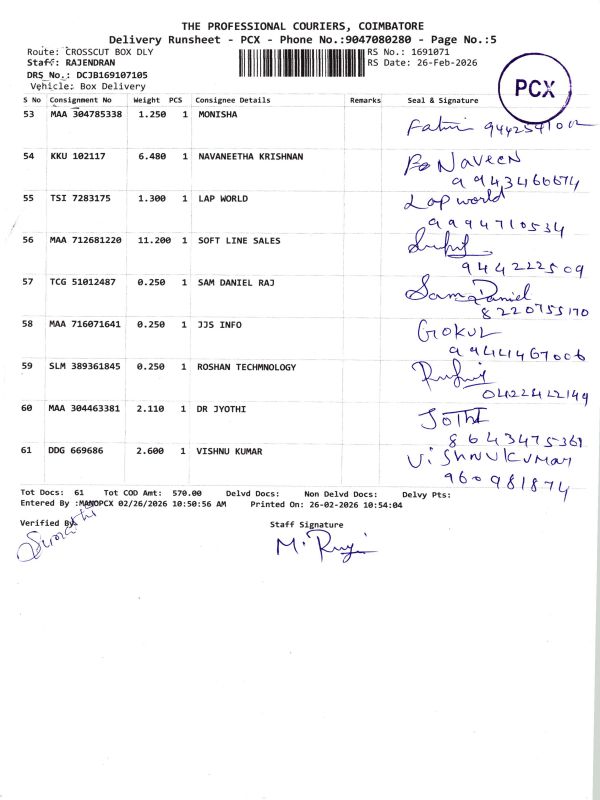 THE PROFESSIONAL COURIERS, COIMBATORE
Delivery Runsheet - PCX - Phone No.:9047080280 - Page No.:5
Route: CROSSCUT BOX DLY RS No.: 1691071
Staff: RAJENDRAN RS Date: 26-Feb-2026
DRS_No.: DCJB169107105
Vehicle: Box Delivery
PCX
S No Consignment No Weight PCS Consignee Details Remarks Seal & Signature
53 MAA 304785338 1.250 1 MONISHA
54 KKU 102117 6.480 1 NAVANEETHA KRISHNAN Naveen
55 TSI 7283175 1.300 1 LAP WORLD Lap world
9994710534
56 MAA 712681220 11.200 1 SOFT LINE SALES
944222509
57 TCG 51012487 0.250 1 SAM DANIEL RAJ Sam Daniel
8220755170
58 MAA 716071641 0.250 1 JJS INFO GOKUL
59 SLM 389361845 0.250 1 ROSHAN TECHMNOLOGY
60 MAA 304463381 2.110 1 DR JYOTHI JOTHI
61 DDG 669686 2.600 1 VISHNU KUMAR ViSHNUKUMAR
960981874
Tot Docs: 61 Tot COD Amt: 570.00 Delvd Docs: Non Delvd Docs: Delvy Pts:
Entered By :MANOPCX 02/26/2026 10:50:56 AM Printed On: 26-02-2026 10:54:04
Verified By Staff Signature